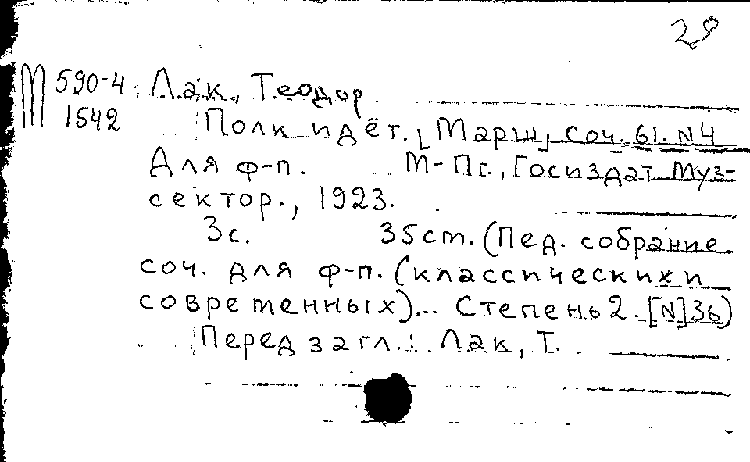 29
М 590-4 Лак, Теодор
1542 Полк идёт. [Марш] соч. 61. N4
Для ф-п. М-Пг., Госиздат Муз-
сектор., 1923.
3с. 35cm. (Пед. собрание
соч. для ф-п. (классических и
современных)... Степень 2. [N]36)
Перед загл.: Лак, Т.